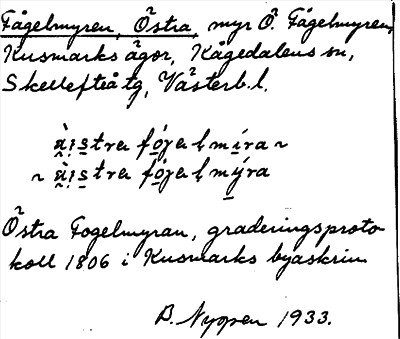 Fågelmyren, Östra, myr Ö. Fågelmyren,
Kusmarks ägor, Kågedalens sn,
Skellefteå tg, Västerb. l.
östra fógalmira ~
~ östra fógalmýra
Östra Fogelmyran, graderingsproto-
koll 1806 i Kusmarks byaskrin
B. Nyopen 1933.